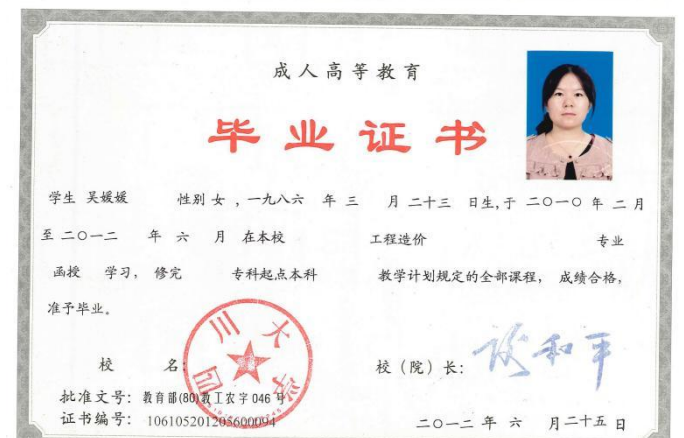 成人高等教育
毕业证书
学生 吴媛媛 性别 女 ，一九八六 年 三 月 二十三 日生,于 二〇一〇 年 二 月
至 二〇一二 年 六 月 在本校 工程造价 专业
函授 学习， 修完 专科起点本科 教学计划规定的全部课程， 成绩合格，
准予毕业。
四川大学
校 名： 校（院）长： 谈和平
批准文号： 教育部(80)教工农字 046 号
证书编号： 106105201205600094
二〇一二 年 六 月二十五 日